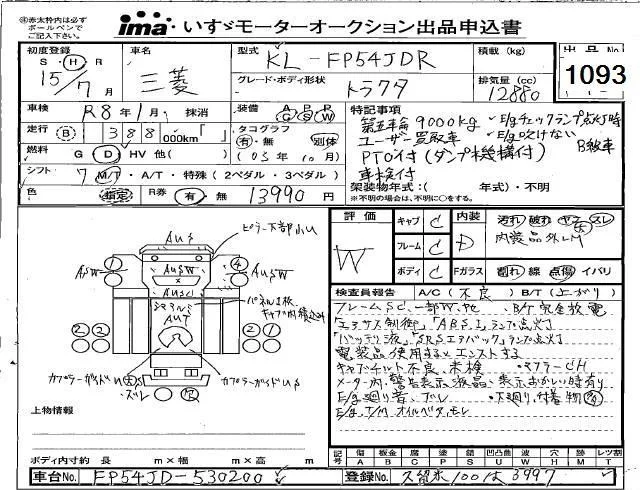 ㊟赤太枠内は必ず
ボールペンで
ご記入下さい。
ima いすゞモーターオークション出品申込書
初度登録
S・H・R
15/7月
車名
三菱
型式
KL-FP54JDR
積載(kg)
グレード・ボディ形状
トラクタ
排気量(cc)
12880
出品No.
1093
車検
R8年1月 抹消
装備
A C P S P W
走行
388,000km「 」
タコグラフ
有・無 別体
(05年10月)
燃料
G D HV 他( )
シフト
7 M/T・A/T・特殊(2ペダル・3ペダル)
色
指定
R券
有・無 13990円
特記事項
第五輪 9000kg
E/gチェックランプ点灯時
ユーザー買取車
E/g吹けない
PTO付(ダンプ機構付)
B級車
車検付
架装物年式:( 年式)・不明
※不明の場合は、不明に○をする。
評価
W
キャブ C
フレーム C
ボディ C
内装
D
Fガラス
汚れ 破れ ヤケ スレ
内装品外しM
割れ 線 点傷 イバリ
検査員報告
A/C(不良) B/T(上がり)
フレームSC、一部W、他 B/T完全放電
「エアサス制御」「ABS」ランプ点灯
「バッテリ液」「SRSエアバック」ランプ点灯
電装品使用するとエンストする
キャブチルト不良、未検 ・マフラーCH
メーター内、警告表示液晶、表示おかしい時有り
E/g廻り音、ブレ ・下廻り、付着物
E/g、T/M オイルベタ、モレ
ピラー下部小U
AUS
ASW
AUSW
AUSW
AUSU
シリアル
AUT
パネル1枚
キャブ内積込み
カプラーガッドUS
ズレ
カプラーガッドUS
上物情報
ボディ内寸約 長 m×幅 m×高 m
記号
傷 A
板金 B
腐 C
塗 P
錆 S
凹凸曲 U
波 W
穴 H
跡 M
レツ割 T
車台No.
FP54JD-530200
登録No.
久留米100は3997